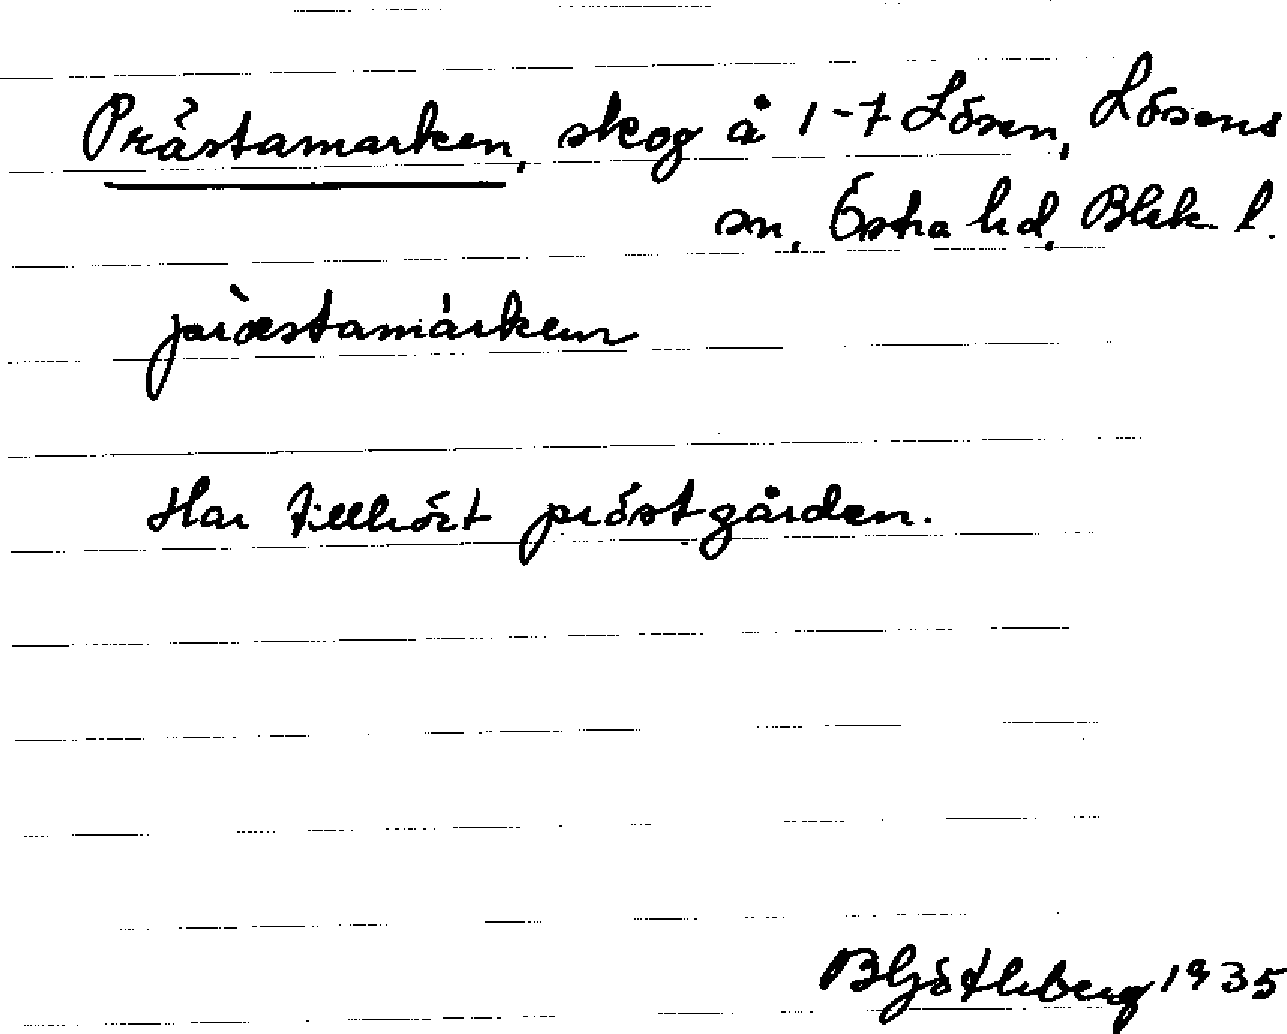 Prästamarken, skog å 1-7 Lösen, Lösens
sn, Östra hd, Blek. l.
pràestamárken
Har tillhört prästgården.
B Götlaberg 1935